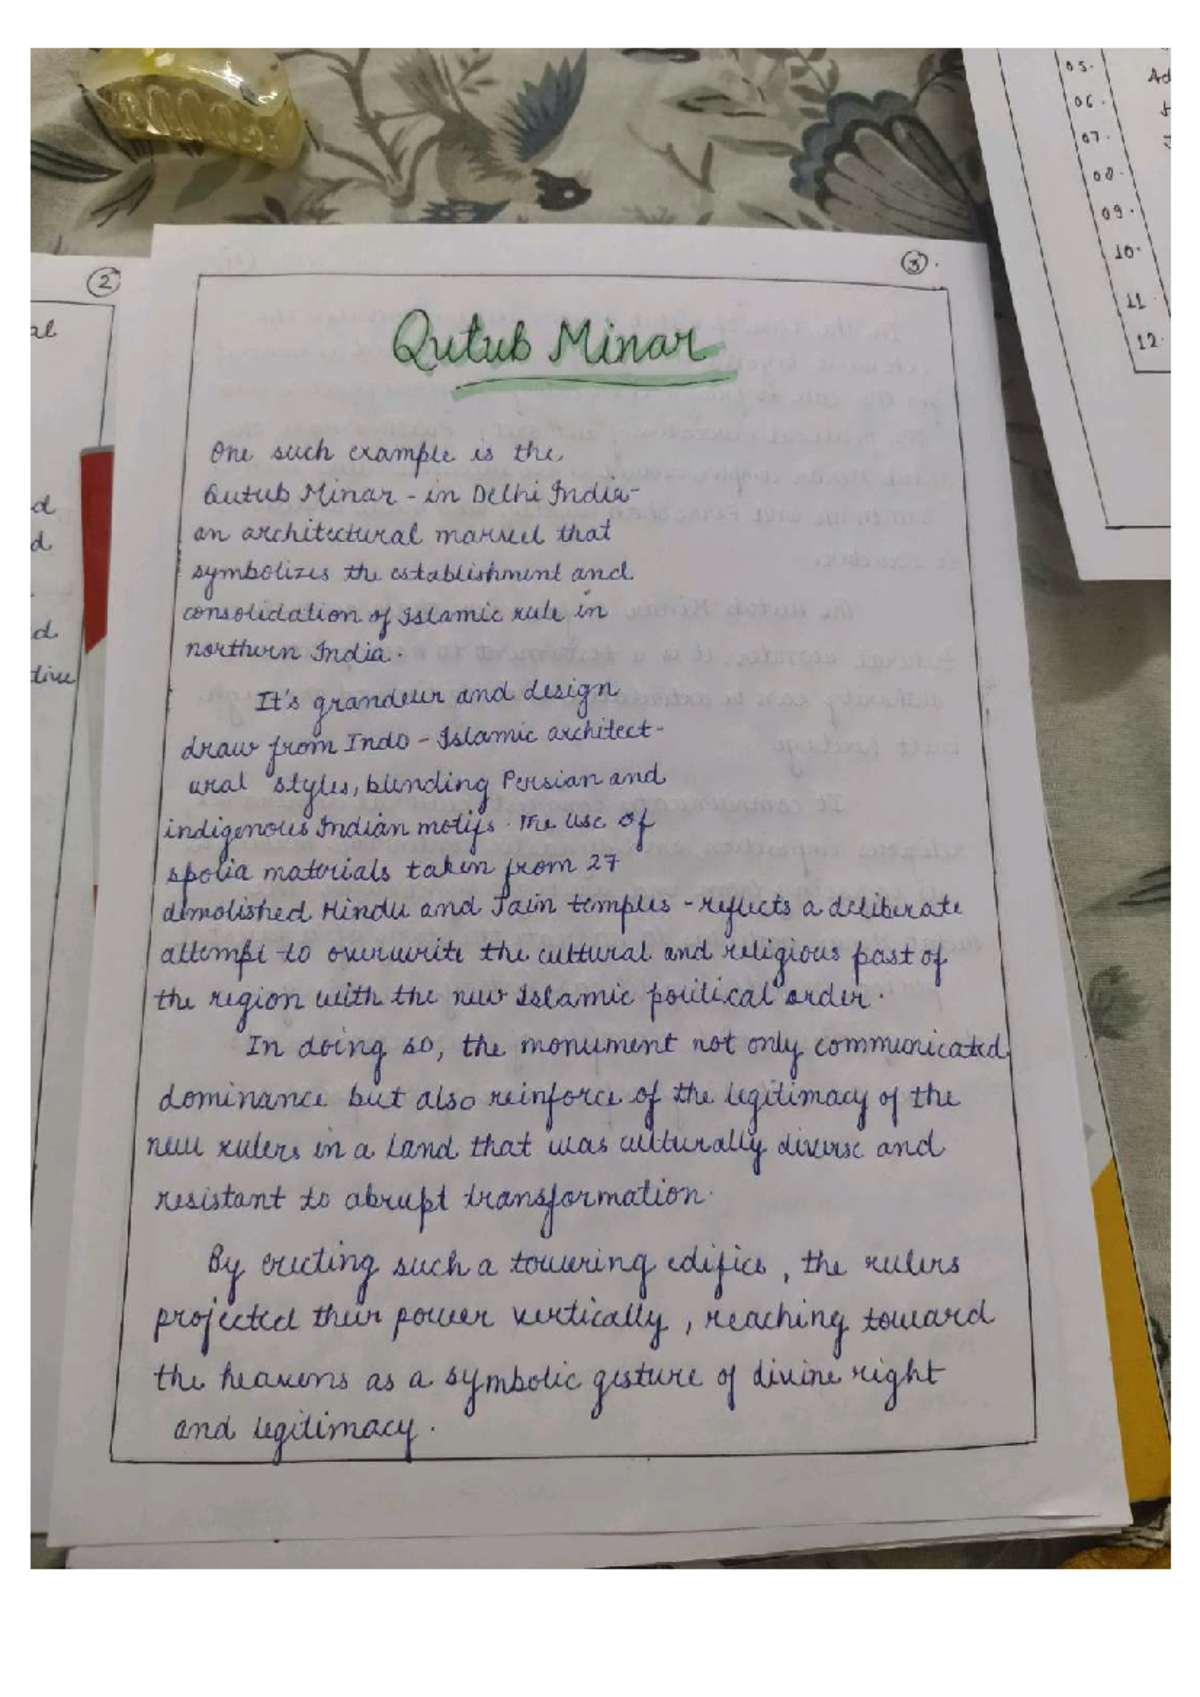 2
al
d
d
d
tive
05.
06.
07.
08.
09.
10.
11.
12.
Ad
3.
Qutub Minar
One such example is the
Qutub Minar - in Delhi India-
an architectural marvel that
symbolizes the establishment and
consolidation of Islamic rule in
northern India.
It's grandeur and design
draw from Indo - Islamic architect-
ural styles, blending Persian and
indigenous Indian motifs. The use of
spolia materials taken from 27
demolished Hindu and Jain temples - reflects a deliberate
attempt to overwrite the cultural and religious past of
the region with the new Islamic political order.
In doing so, the monument not only communicated
dominance but also reinforce of the legitimacy of the
new rulers in a land that was culturally diverse and
resistant to abrupt transformation.
By erecting such a towering edifice, the rulers
projected their power vertically, reaching toward
the heavens as a symbolic gesture of divine right
and legitimacy.